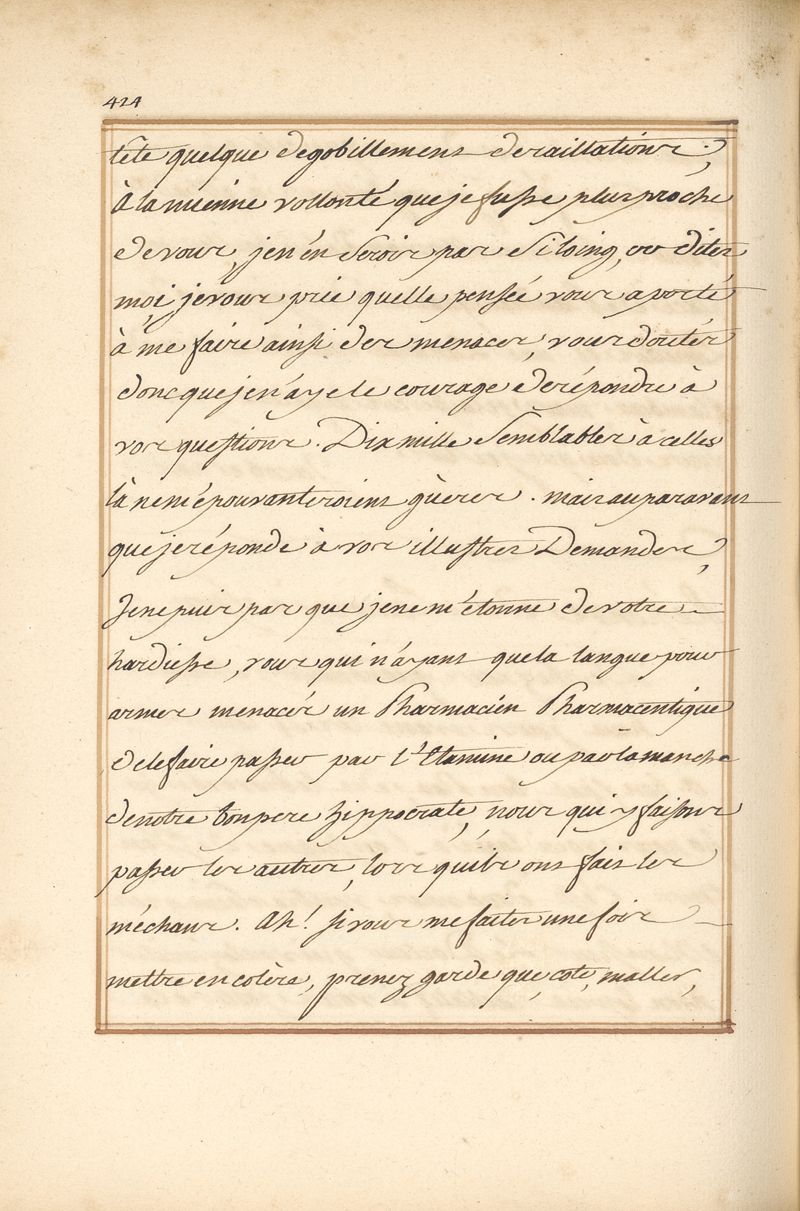 424
tête quelque degobillement de raillations;
à la mienne vollonté que je fusse plus proche
de vous, je n'en serois pas si loing, or dites
moi je vous prie quelle pensée vous a porté
à me faire ainsi des menaces, vous doutés
donc que je n'aye le courage de répondre à
vos questions. Dix mille semblables à celles
là ne m'épouvanteroient guères. mais auparavant
que je réponde à vos illustres Demandes,
Je ne puis pas que je ne m'étonne de votre
hardiesse, vous qui n'ayant que la langue pour
armes menacés un Pharmacien Pharmaceutique
de le faire passer par l'Etamine ou par la manche
de notre bon pere hippocrate, nous qui y faisons
passer les autres, lors quils ont fait les
méchans. Ah! si vous me faites une fois
mettre en colère, prenez garde que, cote, maller,